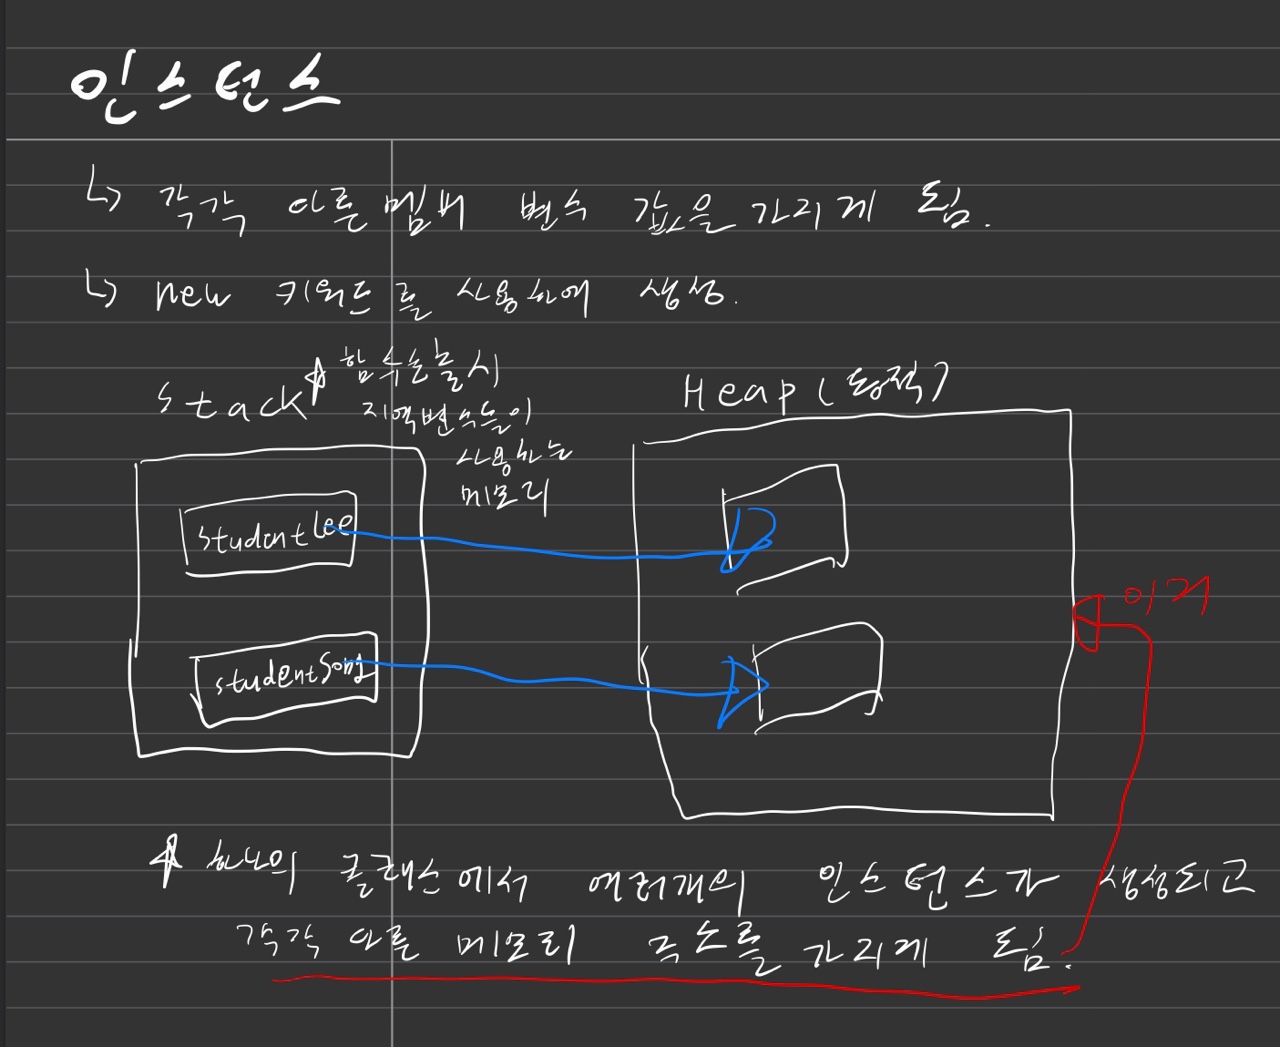 인스턴스
↳ 각각 다른 멤버 변수 값을 가지게 됨.
↳ new 키워드를 사용하여 생성.
Stack
함수호출시
지역변수들이
사용하는
메모리
Heap (동적)
studentLee
studentSong
이거
하나의 클래스에서 여러개의 인스턴스가 생성되고
각각 다른 메모리 주소를 가지게 됨.